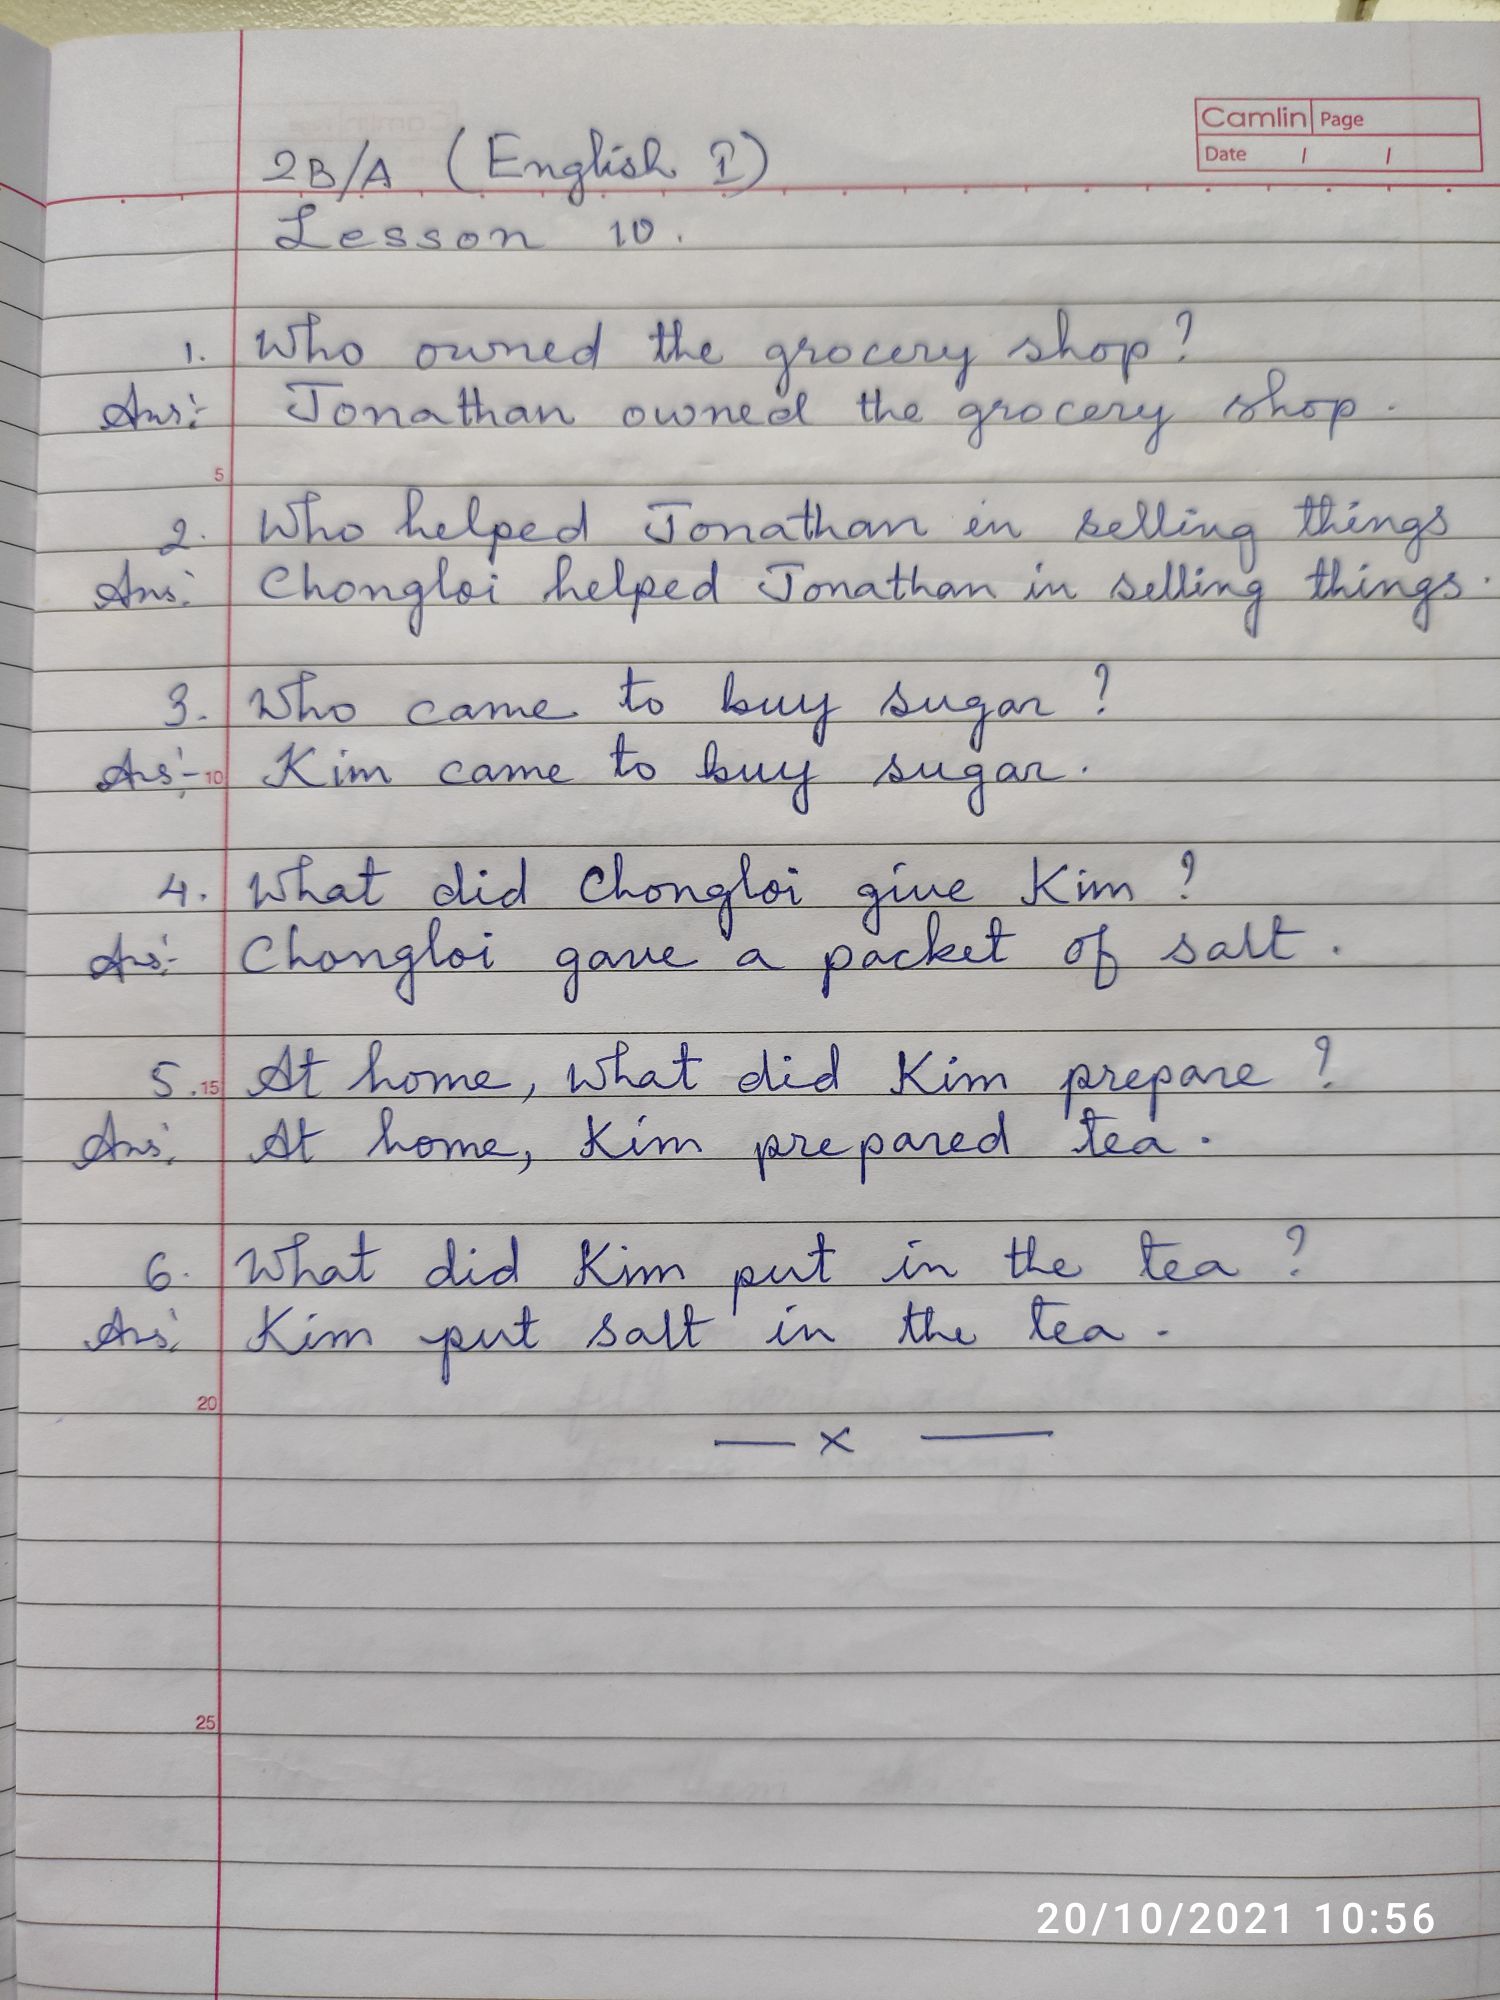 Camlin Page
Date / /
2B/A (English I)
Lesson 10.
1. Who owned the grocery shop?
Ans:- Jonathan owned the grocery shop.
5
2. Who helped Jonathan in selling things
Ans: Chongloi helped Jonathan in selling things.
3. Who came to buy sugar?
Ans:- 10 Kim came to buy sugar.
4. What did Chongloi give Kim?
Ans:- Chongloi gave a packet of salt.
5. 15 At home, what did Kim prepare?
Ans: At home, Kim prepared tea.
6. What did Kim put in the tea?
Ans: Kim put salt in the tea.
20
— x —
25
20/10/2021 10:56